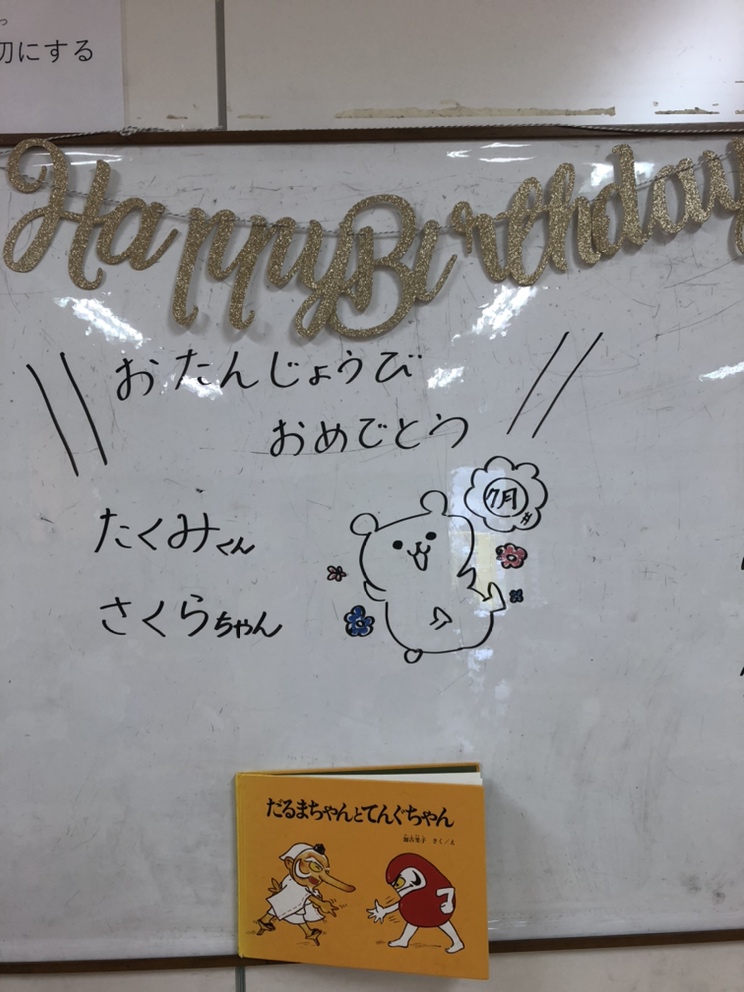 切にする
Happy Birthday
おたんじょうび
おめでとう
7月
たくみくん
さくらちゃん
だるまちゃんとてんぐちゃん
加古里子 さく/え